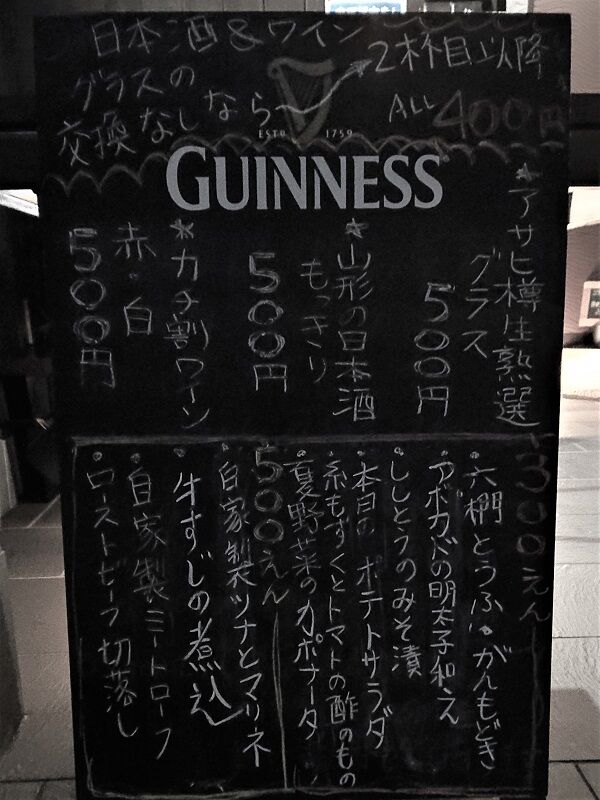 日本酒&ワイン
グラスの
交換なしなら
2杯目以降
ALL 400円
ESTD 1759
GUINNESS
*アサヒ樽生熟選
グラス
500円
*山形の日本酒
もっきり
500円
*カチ割ワイン
赤・白
500円
300えん
・とうふ。がんもどき
・アボカドの明太子和え
・ししとうのみそ漬
・本日のポテトサラダ
・糸もずくとトマトの酢のもの
・夏野菜のカポナータ
500えん
・自家製ツナとマリネ
・牛すじの煮込
・自家製ミートローフ
・ローストビーフ切落し